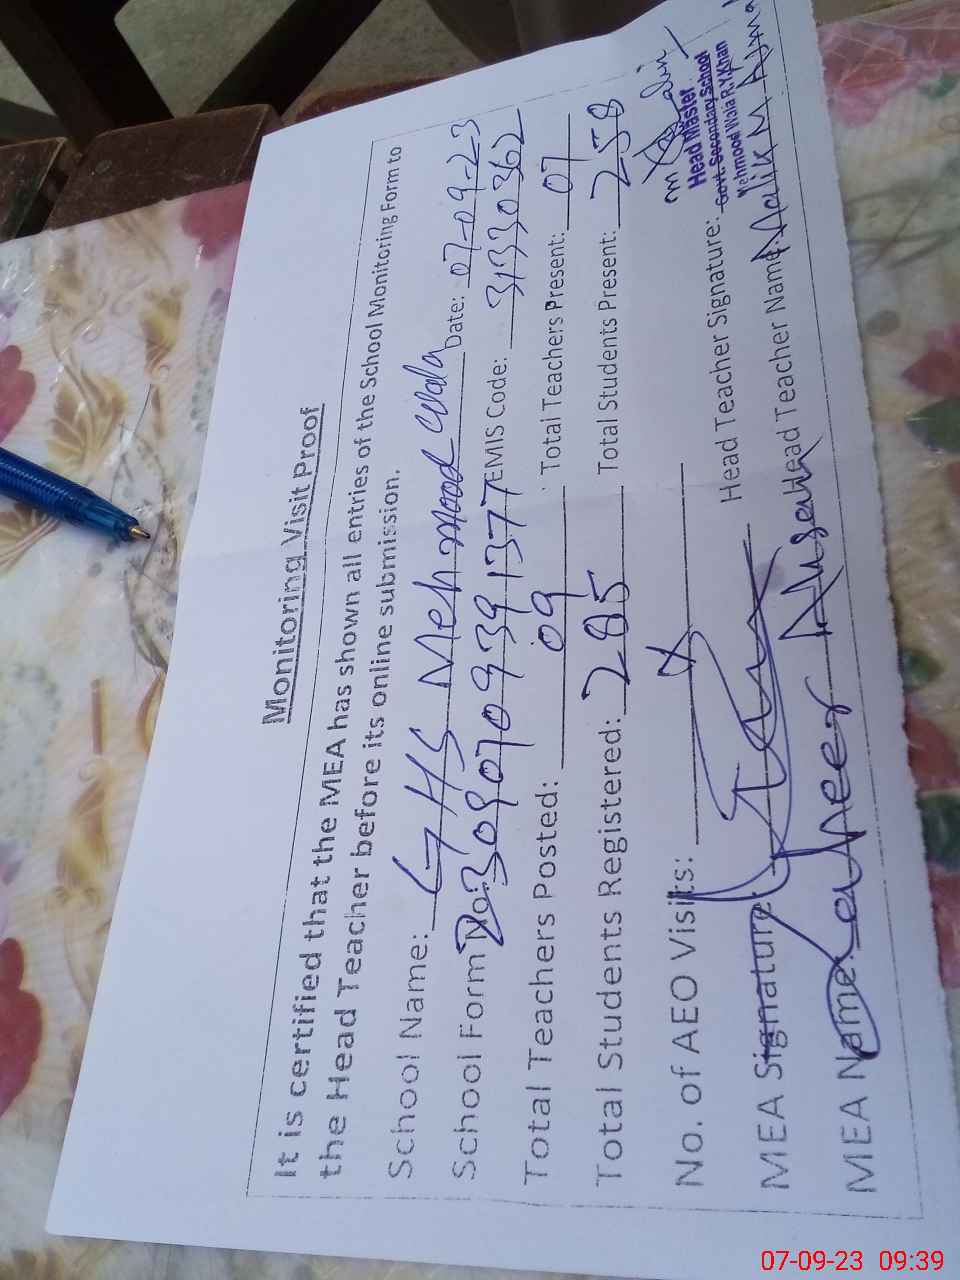 Monitoring Visit Proof
It is certified that the MEA has shown all entries of the School Monitoring Form to
the Head Teacher before its online submission.
School Name: GHS Mehmood Wala Date: 07-09-23
School Form No: 23090709391377 EMIS Code: 31330362
Total Teachers Posted: 09 Total Teachers Present: 07
Total Students Registered: 285 Total Students Present: 258
No. of AEO Visits:
MEA Signature: Head Teacher Signature:
Head Master
Govt. Secondary School
Mehmood Wala R.Y.Khan
MEA Name: Head Teacher Name: Malik M
07-09-23 09:39